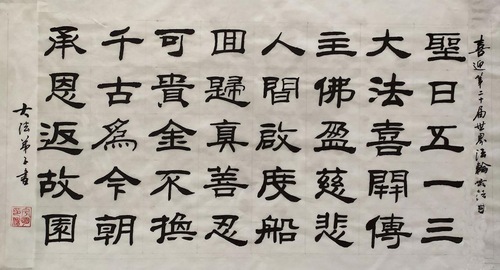 喜迎第二十届世界法輪大法日
聖日五一三
大法喜開傳
主佛盈慈悲
人間啟度船
回歸真善忍
可貴金不換
千古爲今朝
承恩返故園
大法弟子書